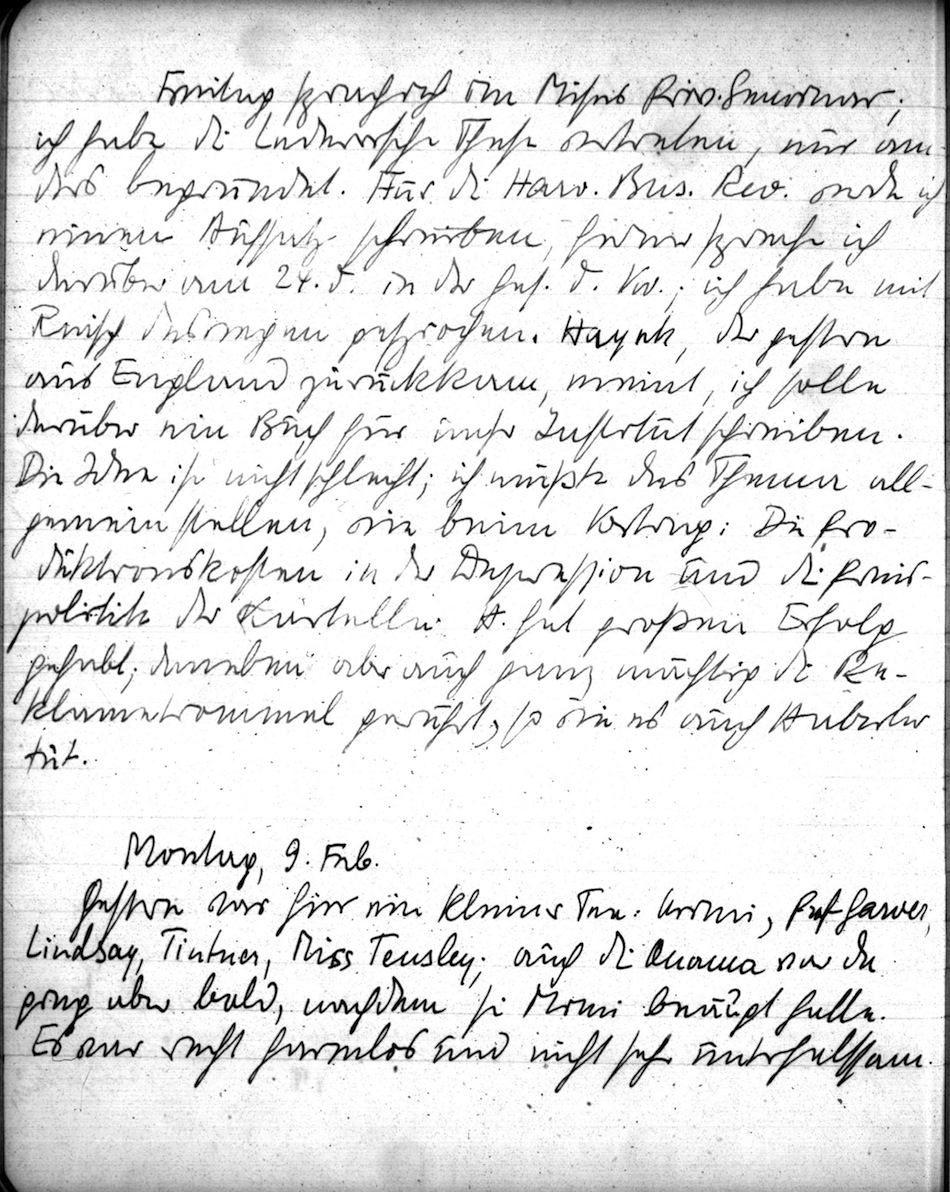 Freitag sprach ich im Mises Priv. Seminar;
ich habe die Ladenersche These vertreten, nur an-
ders begründet. Für die Harv. Bus. Rev. werde ich
einen Aufsatz schreiben, ferner spreche ich
darüber am 24. d. in der Ges. d. Vw.; ich habe mit
Reisch deswegen gesprochen. Hayek, der gestern
aus England zurückkam, meint, ich solle
darüber ein Buch für unser Institut schreiben.
Die Idee ist nicht schlecht; ich müßte das Thema all-
gemein stellen, wie beim Vortrag: Die Pro-
duktionskosten in der Depression und die Preis-
politik der Kartelle. H. hat großen Erfolg
gehabt; daneben aber auch ganz mächtig die Re-
klametrommel gerührt, so wie es auch Haberler
tut.
Montag, 9. Feb.
Gestern war hier ein kleiner Tee: Mimi, Prof. Garver,
Lindsay, Tintner, Miss Tensley; auch die Mama war da
ging aber bald, nachdem sie Mimi beäugt hatte.
Es war recht harmlos und nicht sehr unterhaltsam.